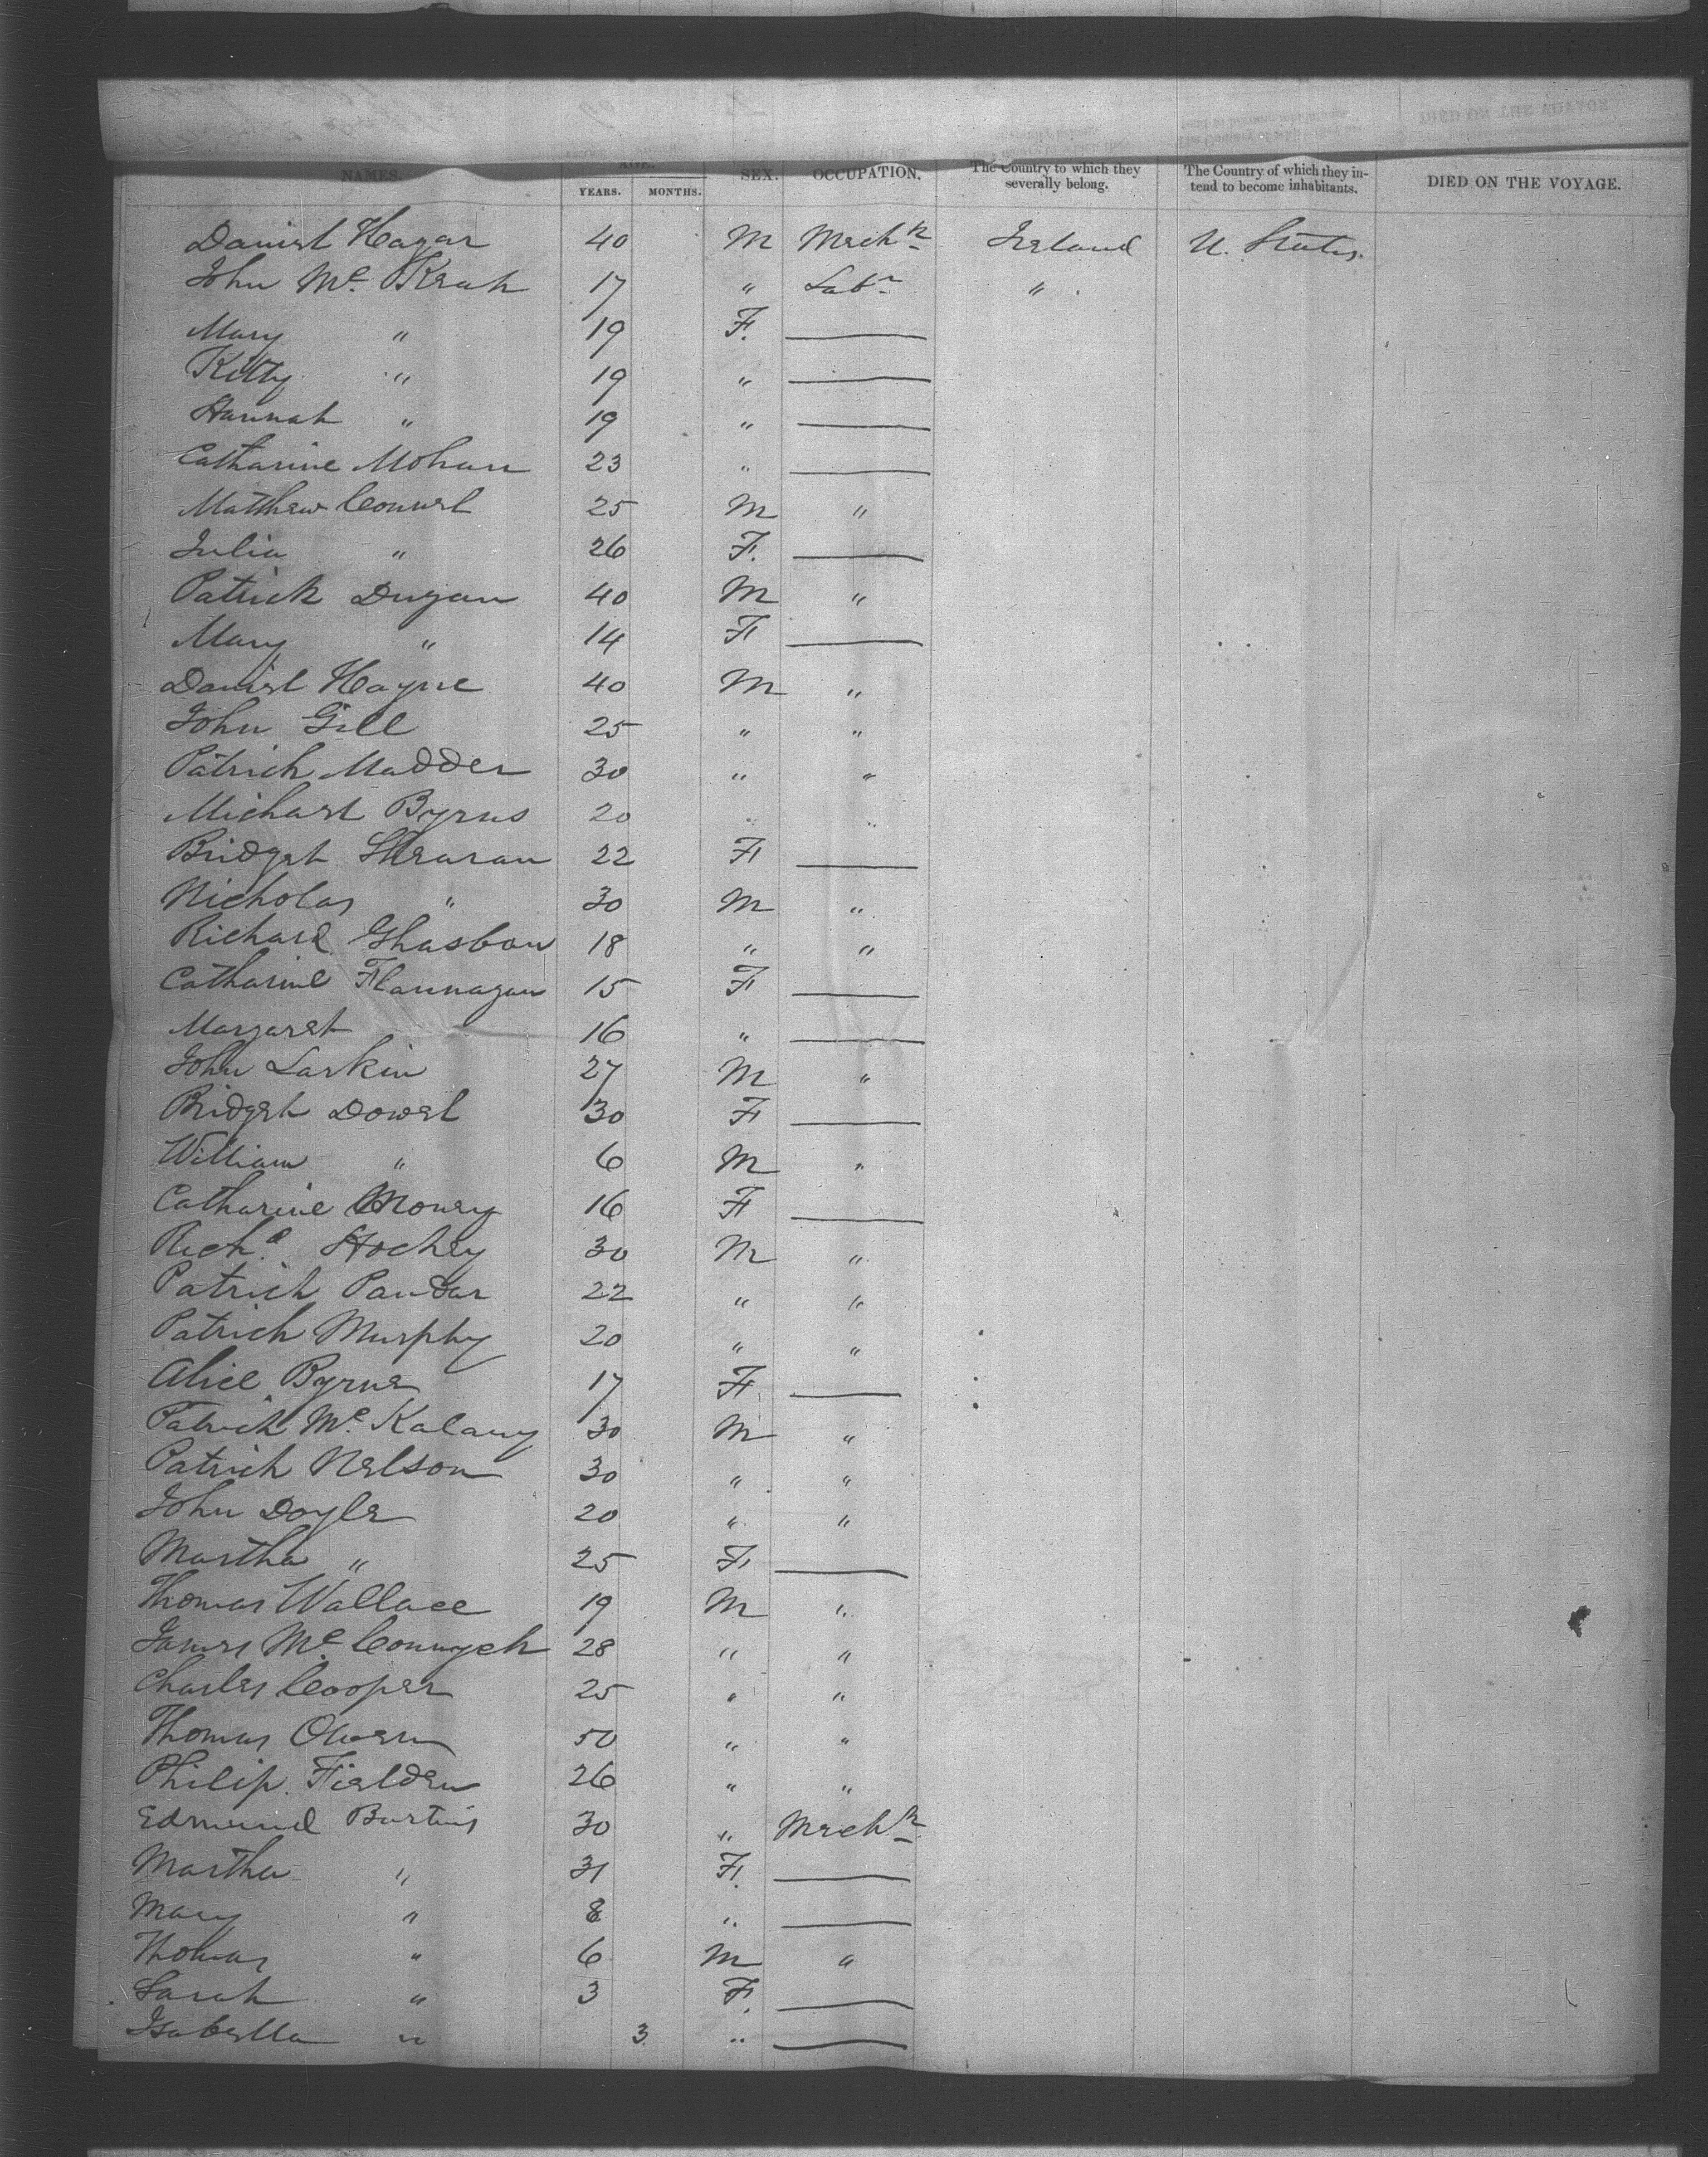 NAMES. AGE. SEX. OCCUPATION. The Country to which they severally belong. The Country of which they intend to become inhabitants. DIED ON THE VOYAGE.
YEARS. MONTHS.
Daniel Hagar 40 M Mech<sup>k</sup> Ireland U. States.
John Mc. Krah 17 " Labr "
Mary " 19 F. —
Kitty " 19 " —
Hannah " 19 " —
Catharine Mohan 23 " —
Matthew Connel 25 M "
Julia " 26 F. —
Patrick Dugan 40 M "
Mary " 14 F —
Daniel Hayne 40 M "
John Gill 25 " "
Patrick Madden 30 " "
Michael Byrns 20 " "
Bridget Shearan 22 F —
Nicholas " 30 M "
Richard Ghasbow 18 " "
Catharine Flannagan 15 F —
Margaret 16 " —
John Larkin 27 M "
Bridget Dowel 30 F —
William " 6 M "
Catharine Money 16 F —
Richd. Hockey 30 M "
Patrick Pandar 22 " "
Patrick Murphy 20 " "
Alice Byrne 17 F —
Patrick Mc. Kalany 30 M "
Patrick Nelson 30 " "
John Doyle 20 " "
Martha " 25 F —
Thomas Wallace 19 M "
James Mc. Connych 28 " "
Charles Cooper 25 " "
Thomas Owern 50 " "
Philip Fielden 26 " "
Edmund Burtins 30 " Mech
Martha " 31 F. —
Mary " 8 " —
Thomas " 6 M "
Sarah " 3 F. —
Isabella " 3 " —